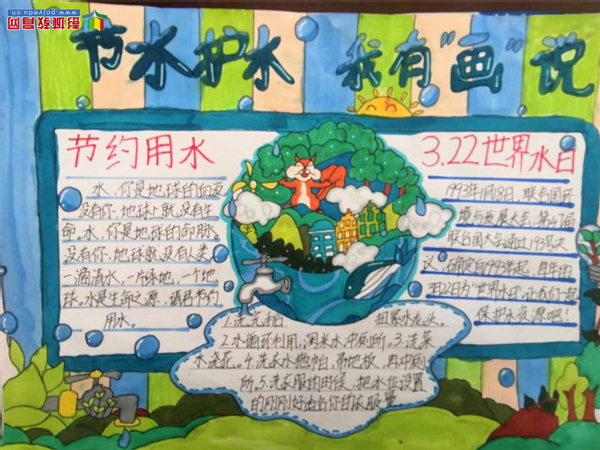 节水护水 我有"画"说
节约用水
水，你是地球的血液
没有你，地球上就没有生
命。水，你是地球的命脉。
没有你，地球就没有人类
一滴清水，一片绿地，一个地
球。水是生命之源，请君节约
用水。
3.22世界水日
1993年1月18日，联合国环
境与发展大会，第47届
联合国大会通过193号决
议，确定自1993年起，每年的
3月22日为"世界水日"让我们一起
保护水资源吧！
1.洗完手后 扭紧水龙头。
2.水循环利用，淘米水冲厕所。3.洗菜
水浇花。4.洗衣水拖地，再冲厕
所。5.洗衣服的时候，把水位设置
的刚刚好适合你的衣服量
www.paiyedu.cn